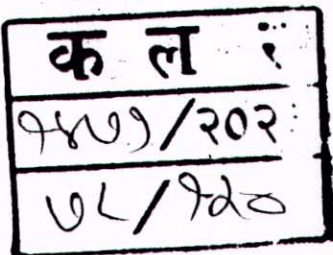 क ल १
१४७१/२०२
७८/१२०